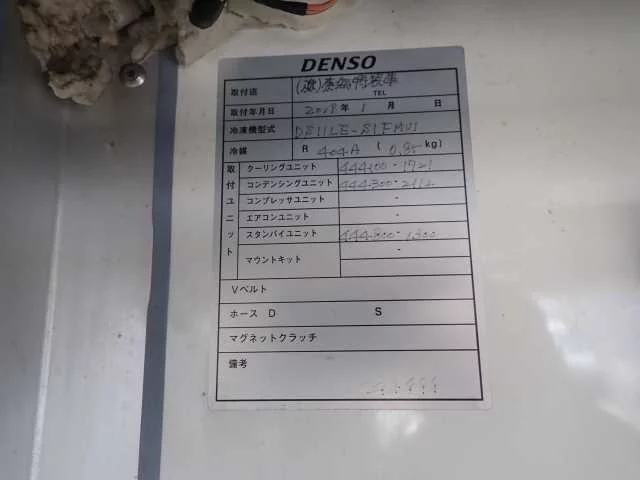 DENSO
取付店 (株)
TEL
取付年月日 2018 年 1 月 日
冷凍機型式 DS11LE-S1FMU1
冷媒 R 404A ( 0.85 kg)
取付ユニット
クーリングユニット 444300-1721
コンデンシングユニット 444300-2112
コンプレッサユニット -
エアコンユニット -
スタンバイユニット 444300-1300
マウントキット -
Vベルト
ホース D S
マグネットクラッチ
備考